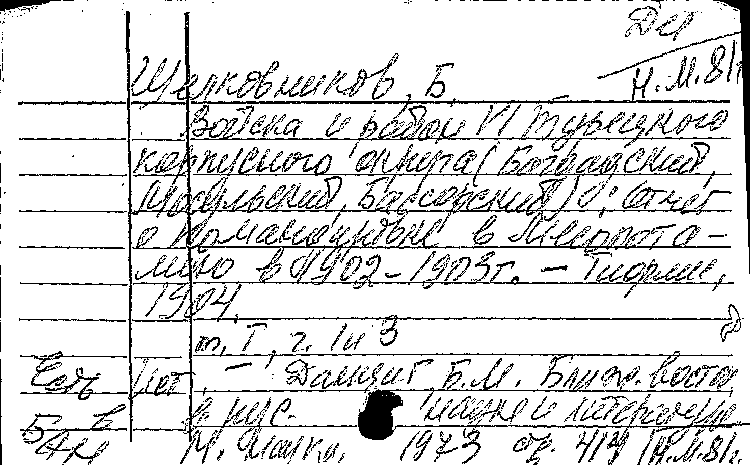 Деп
Н.М.81г
Щелковников, Б.
Войска и район VI Турецкого
корпусного округа (Багдадский,
Мосульский, Бассорский) : Отчет
о командировке в Месопота-
мию в 1902-1903г. — Тифлис,
1904.
т. I, ч. 1 и 3
Есть Ист. — Данциг, Б.М. Ближ. восток
в рус. науке и литературе
Б-в АН М. Наука, 1973 стр. 414 (Н.М.81г.